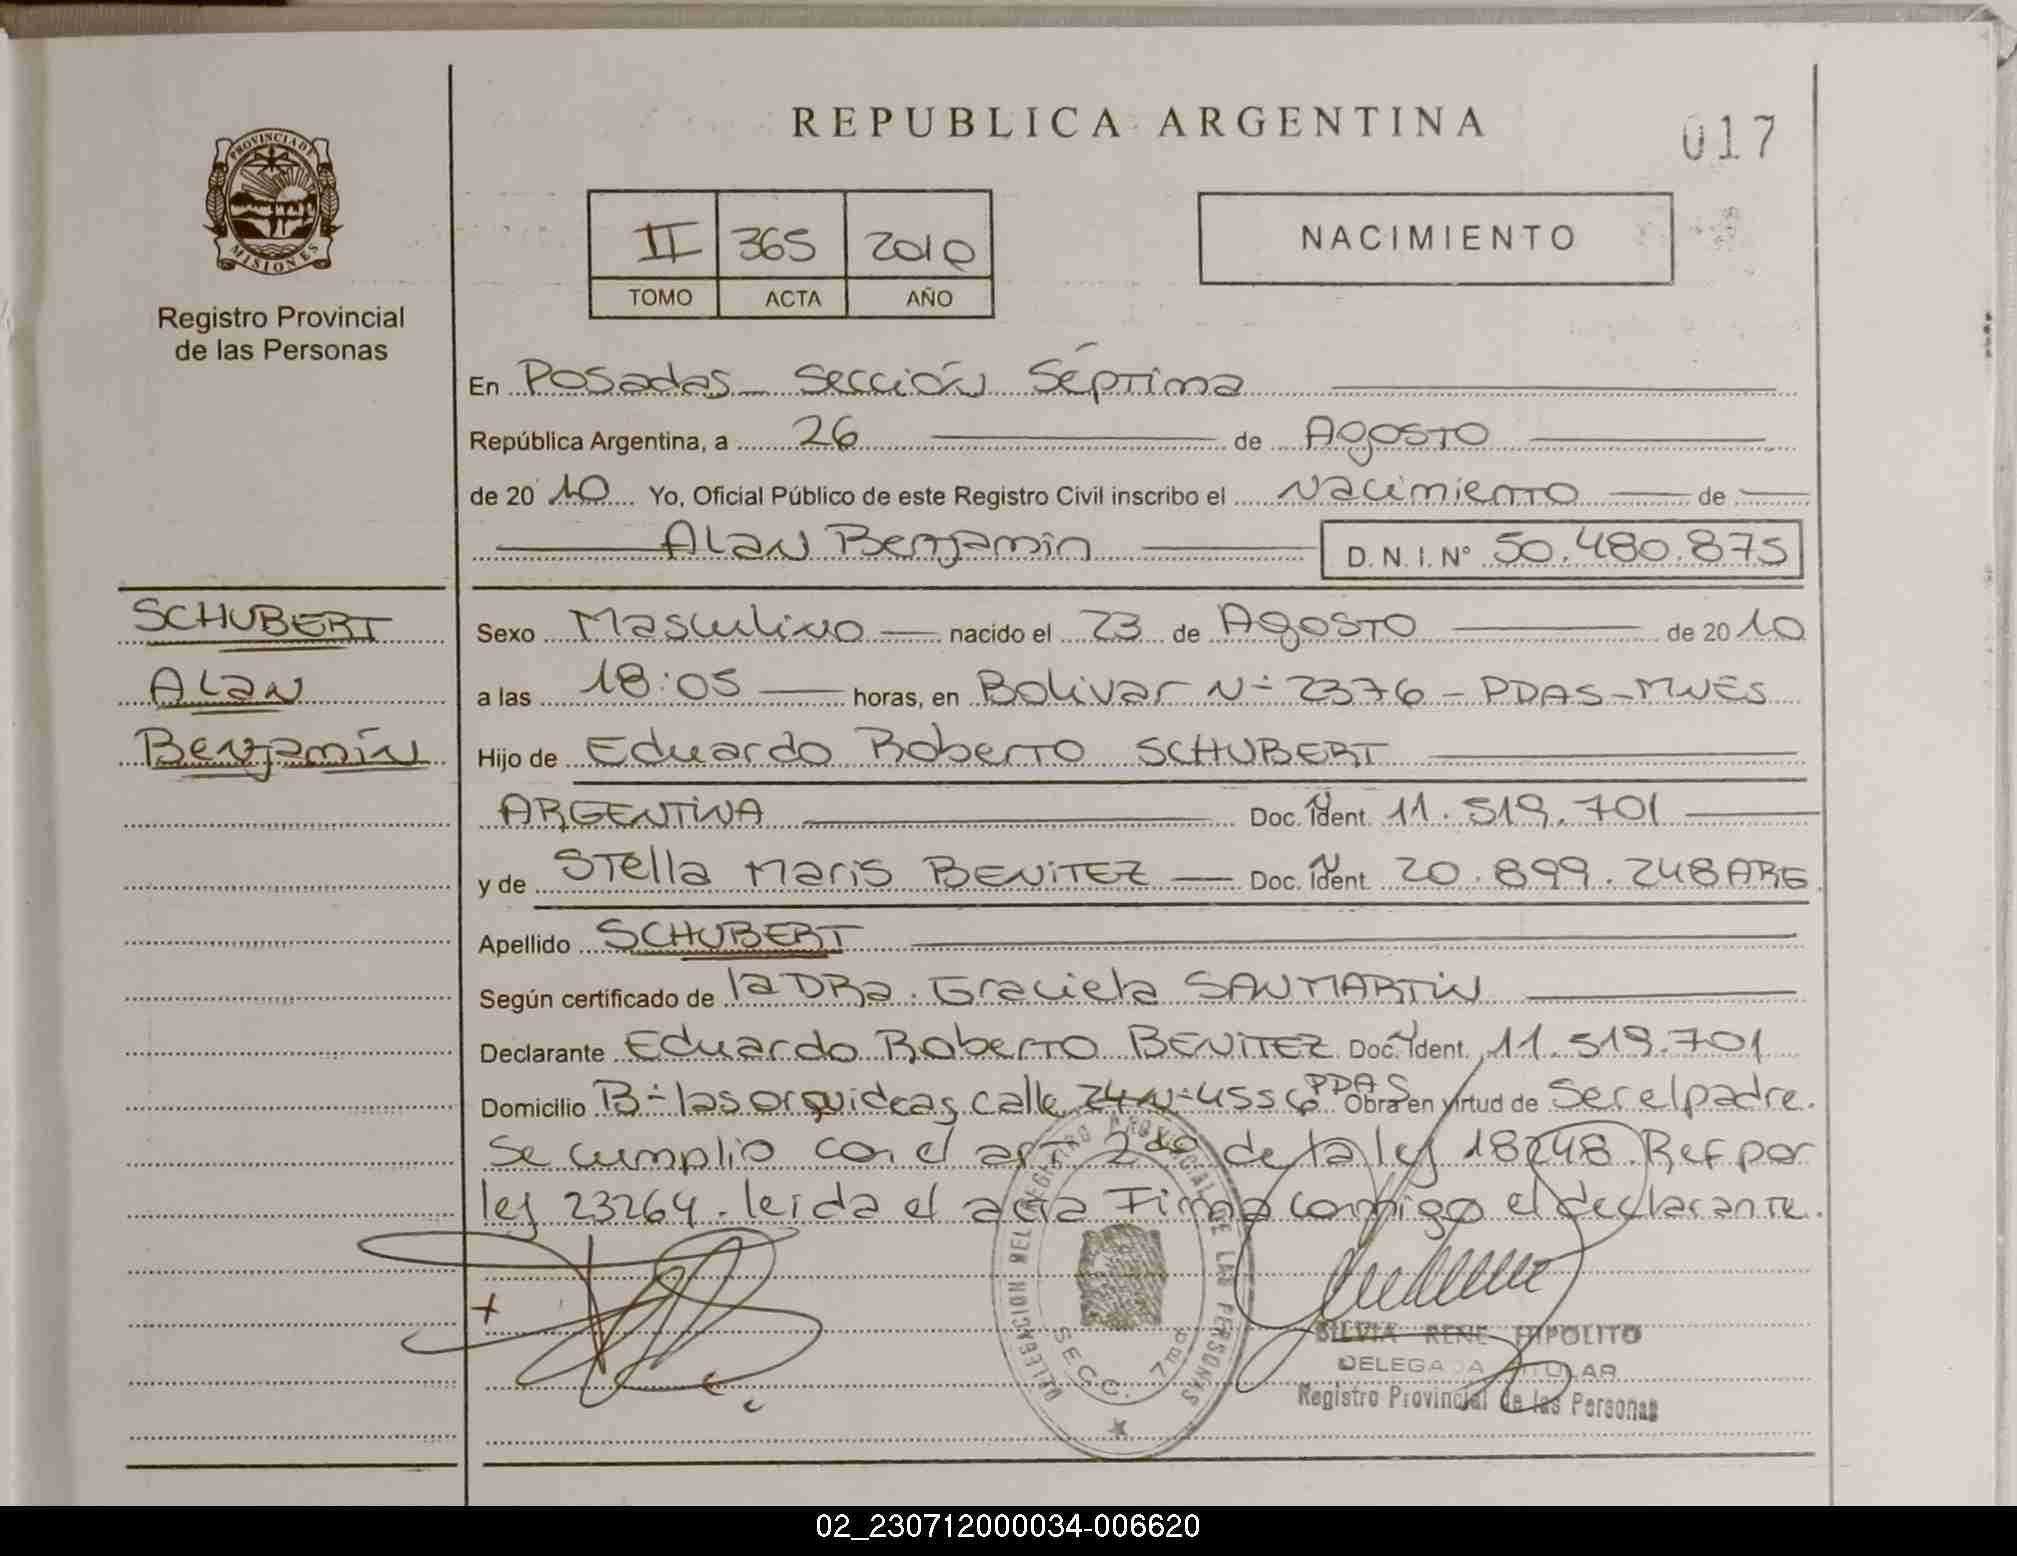 REPUBLICA ARGENTINA
017
PROVINCIA DE MISIONES
Registro Provincial
de las Personas
II 365 2010
TOMO ACTA AÑO
NACIMIENTO
En Posadas - Sección Séptima
República Argentina, a 26 de Agosto
de 2010 Yo, Oficial Público de este Registro Civil inscribo el Nacimiento de
Alan Benjamin D. N. I. Nº 50.480.875
SCHUBERT
Alan
Benjamín
Sexo Masculino nacido el 23 de Agosto de 2010
a las 18:05 horas, en Bolivar Nº 2376 - PDAS - MNES
Hijo de Eduardo Roberto SCHUBERT
ARGENTINA Doc. Ident. 11.519.701
y de Stella Maris BENITEZ Doc. Ident. 20.899.248 ARG
Apellido SCHUBERT
Según certificado de la DRa. Graciela SANMARTIN
Declarante Eduardo Roberto BENITEZ Doc. Ident. 11.519.701
Domicilio Bº las orquideas calle 24 Nº 4556 PDAS Obra en virtud de Ser el padre.
Se cumplio con el art 2do de la ley 18248. Ref por
ley 23264. leida el acta Firma conmigo el declarante.
DELEGACION DEL REGISTRO PROVINCIAL DE LAS PERSONAS
SECC. 7ma
SILVIA RENE HIPOLITO
DELEGADA TITULAR
Registro Provincial de las Personas
02_230712000034-006620